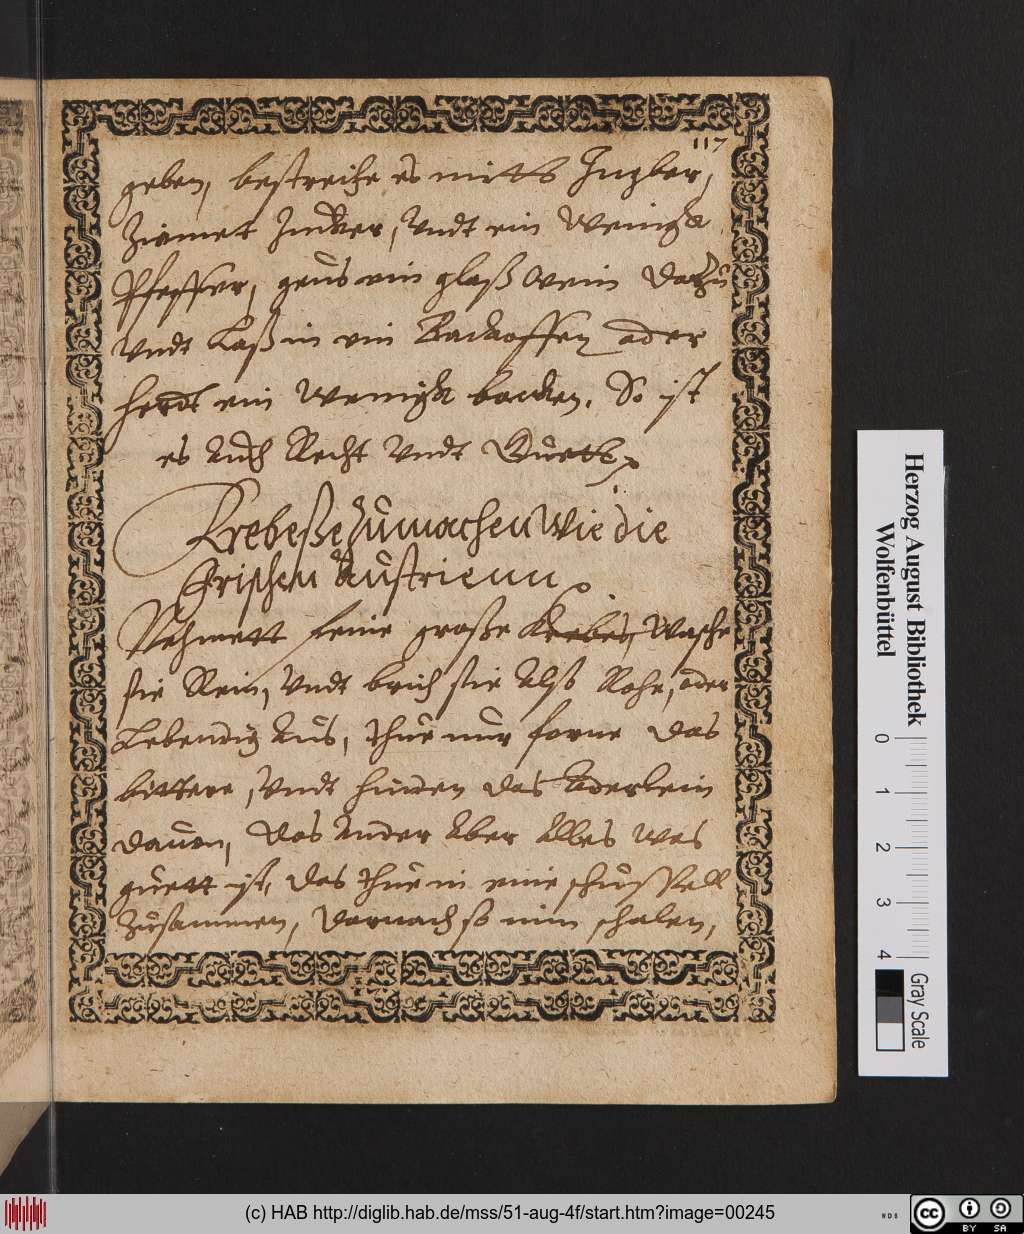 117
geben, bestreiche es mitt Ingber,
Zimet Zucker, Vndt ein Wenigk
Pfeffer, geus ein glaß Wein dartzu
Vndt Laß in ein Backoffen oder
herdt ein Wenigk backen. So ist
es Auch Recht Vndt Guett.
Krebeße zu machen Wie die
frischen Austrienn.
Nehmett feine große Krebes, Wasche
sie Rein, Vndt brich sie Alß Rohe, oder
Lebendig Aus, thue nur forne das
bittere, Vndt hinden das Aderlein
dauon, das Ander Aber Alles Was
guett ist, das thue in eine schüssell
Zusammen, darnach so nim schalen,
Herzog August Bibliothek
Wolfenbüttel
0 1 2 3 4
Gray Scale
(c) HAB http://diglib.hab.de/mss/51-aug-4f/start.htm?image=00245
WDB
cc BY SA